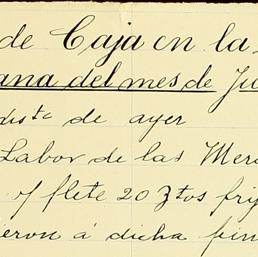 de Caja en la
ana del mes de Ju
dista de ayer
Labor de las Mer
y flete 20 Ztos frij
eron á dicha fin